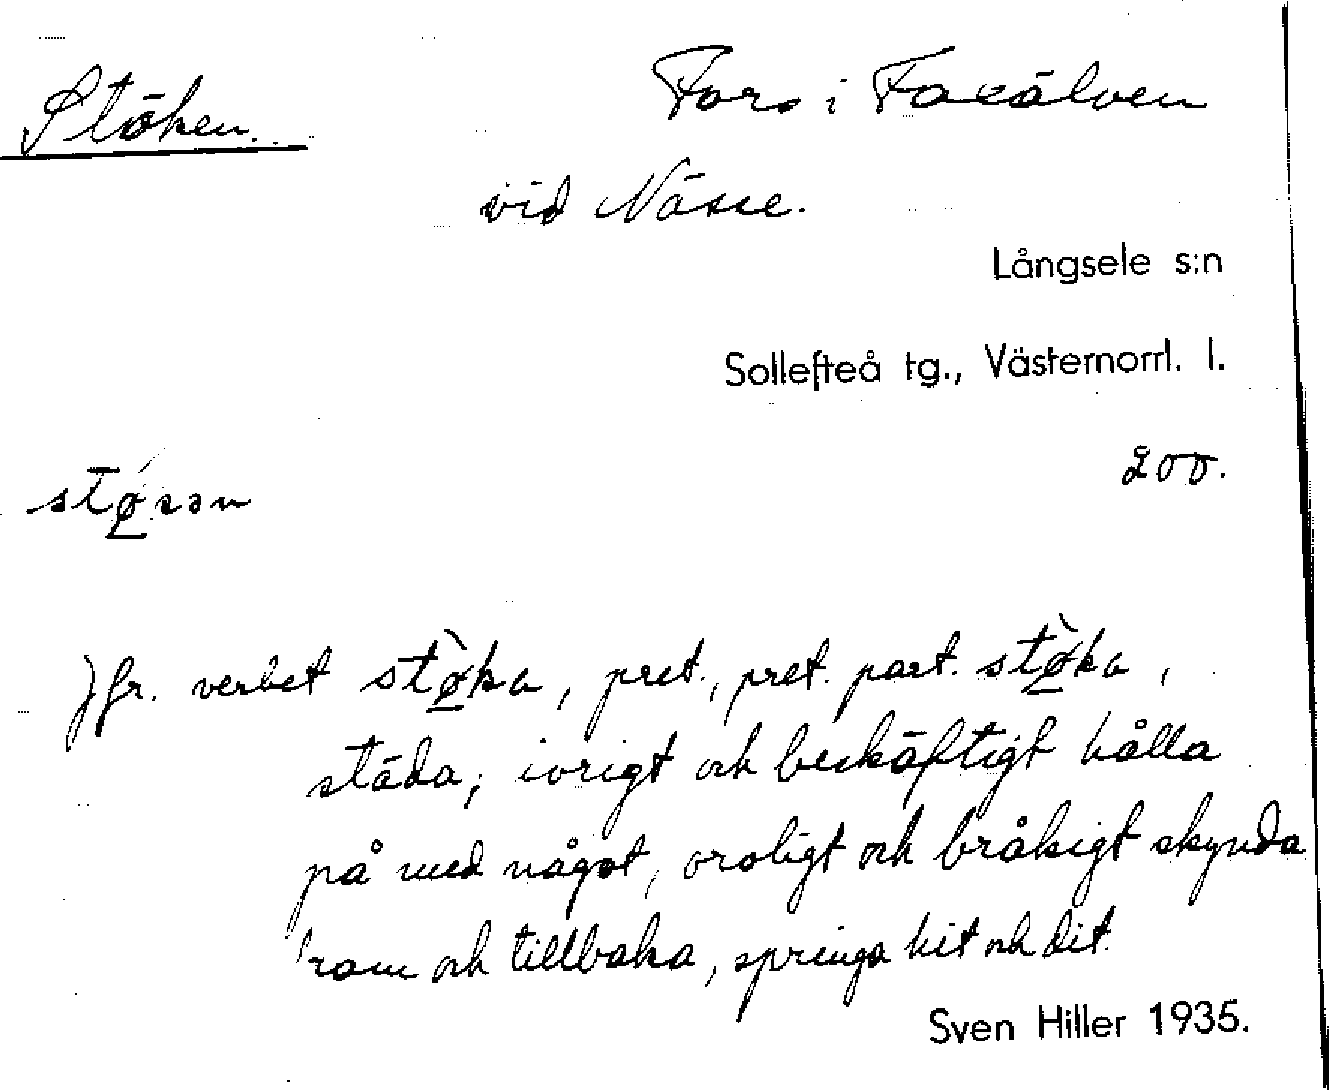 Stöken.
Fors i Faxälven
vid Näsie.
Långsele s:n
Sollefteå tg., Västernorrl. l.
200.
Jfr. verbet stø̀ka, pret., pret. part. stø̀ka,
städa, ivrigt och beskäftigt hålla
på med något, oroligt och bråkigt skynda
fram och tillbaka, springa hit och dit.
Sven Hiller 1935.